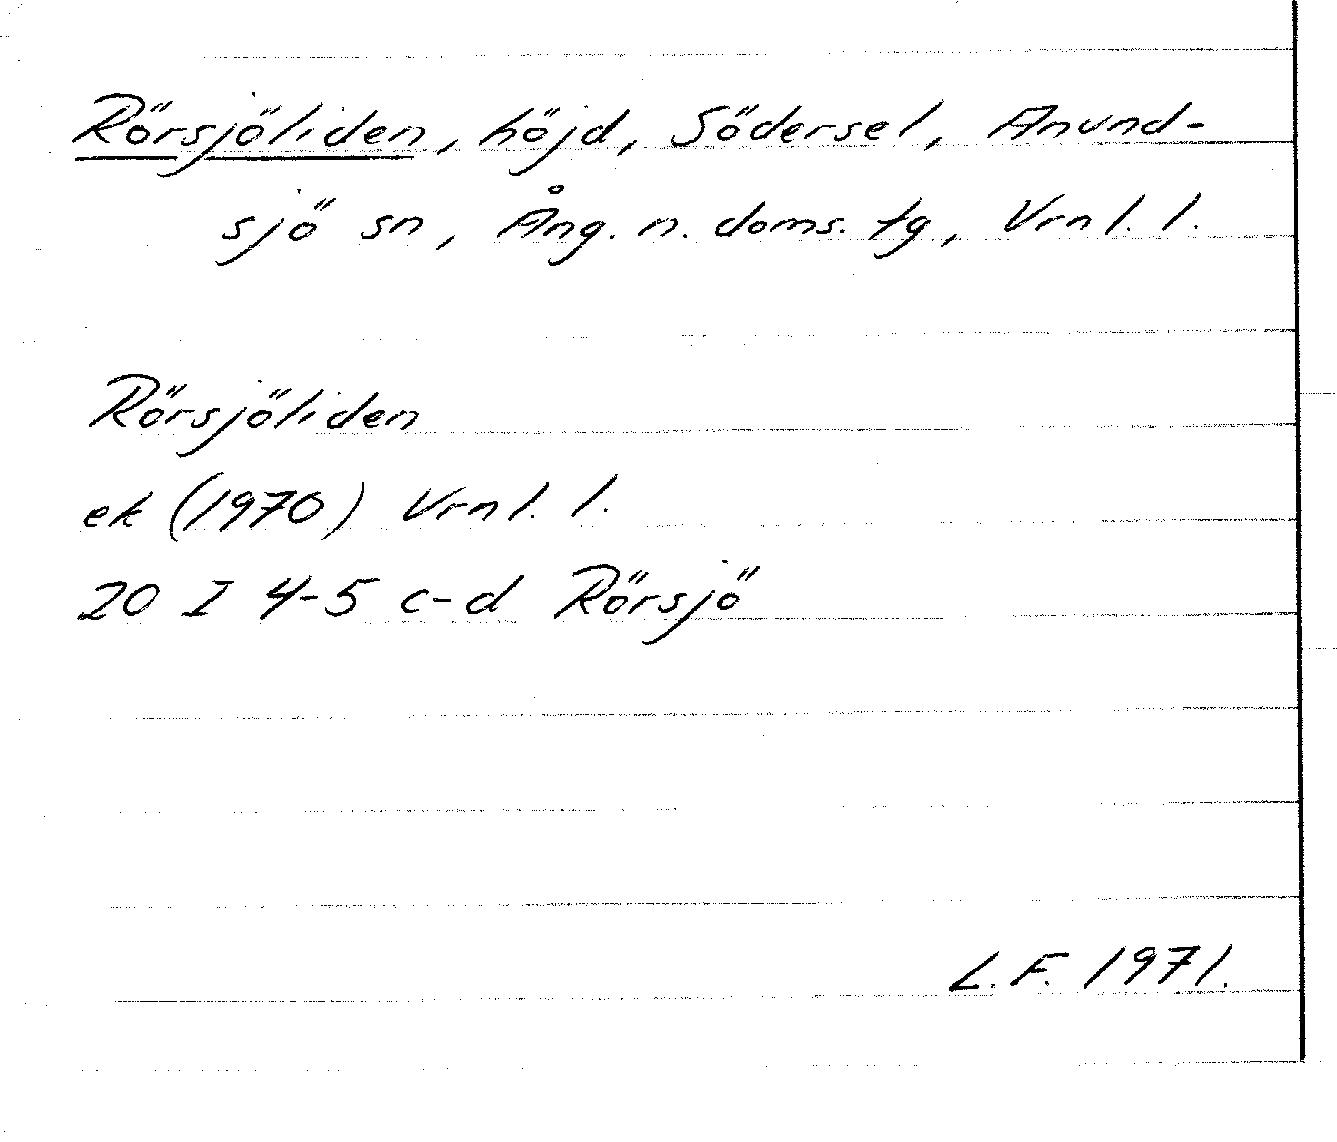 Rörsjöliden, höjd, Södersel, Anund-
sjö sn, Ång. n. doms. tg, Vrnl. l.
Rörsjöliden
ek (1970) Vrnl. l.
20 I 4-5 c-d Rörsjö
L.F. 1971.